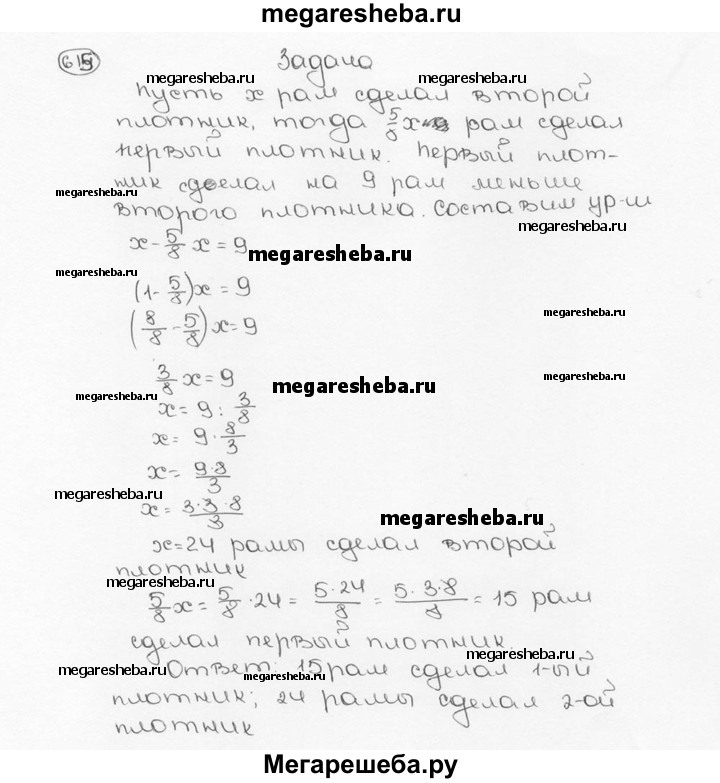 megaresheba.ru
615
Задача
megaresheba.ru megaresheba.ru
Пусть x рам сделал второй
плотник, тогда 5/8 x рам сделал
первый плотник. Первый плот-
ник сделал на 9 рам меньше
megaresheba.ru
второго плотника. Составим ур-ш
megaresheba.ru
x - 5/8 x = 9
megaresheba.ru
megaresheba.ru
(1 - 5/8)x = 9
megaresheba.ru
(8/8 - 5/8)x = 9
3/8 x = 9
megaresheba.ru
megaresheba.ru
megaresheba.ru
x = 9 : 3/8
x = 9 · 8/3
x = 9·8/3
megaresheba.ru
x = 3·3·8/3
megaresheba.ru
x = 24 рамы сделал второй
плотник
megaresheba.ru
5/8 x = 5/8 · 24 = 5·24/8 = 5·3·8/8 = 15 рам
сделал первый плотник.
megaresheba.ru megaresheba.ru
Ответ: 15 рам сделал 1-ый
плотник; 24 рамы сделал 2-ой
плотник
Мегарешеба.ру